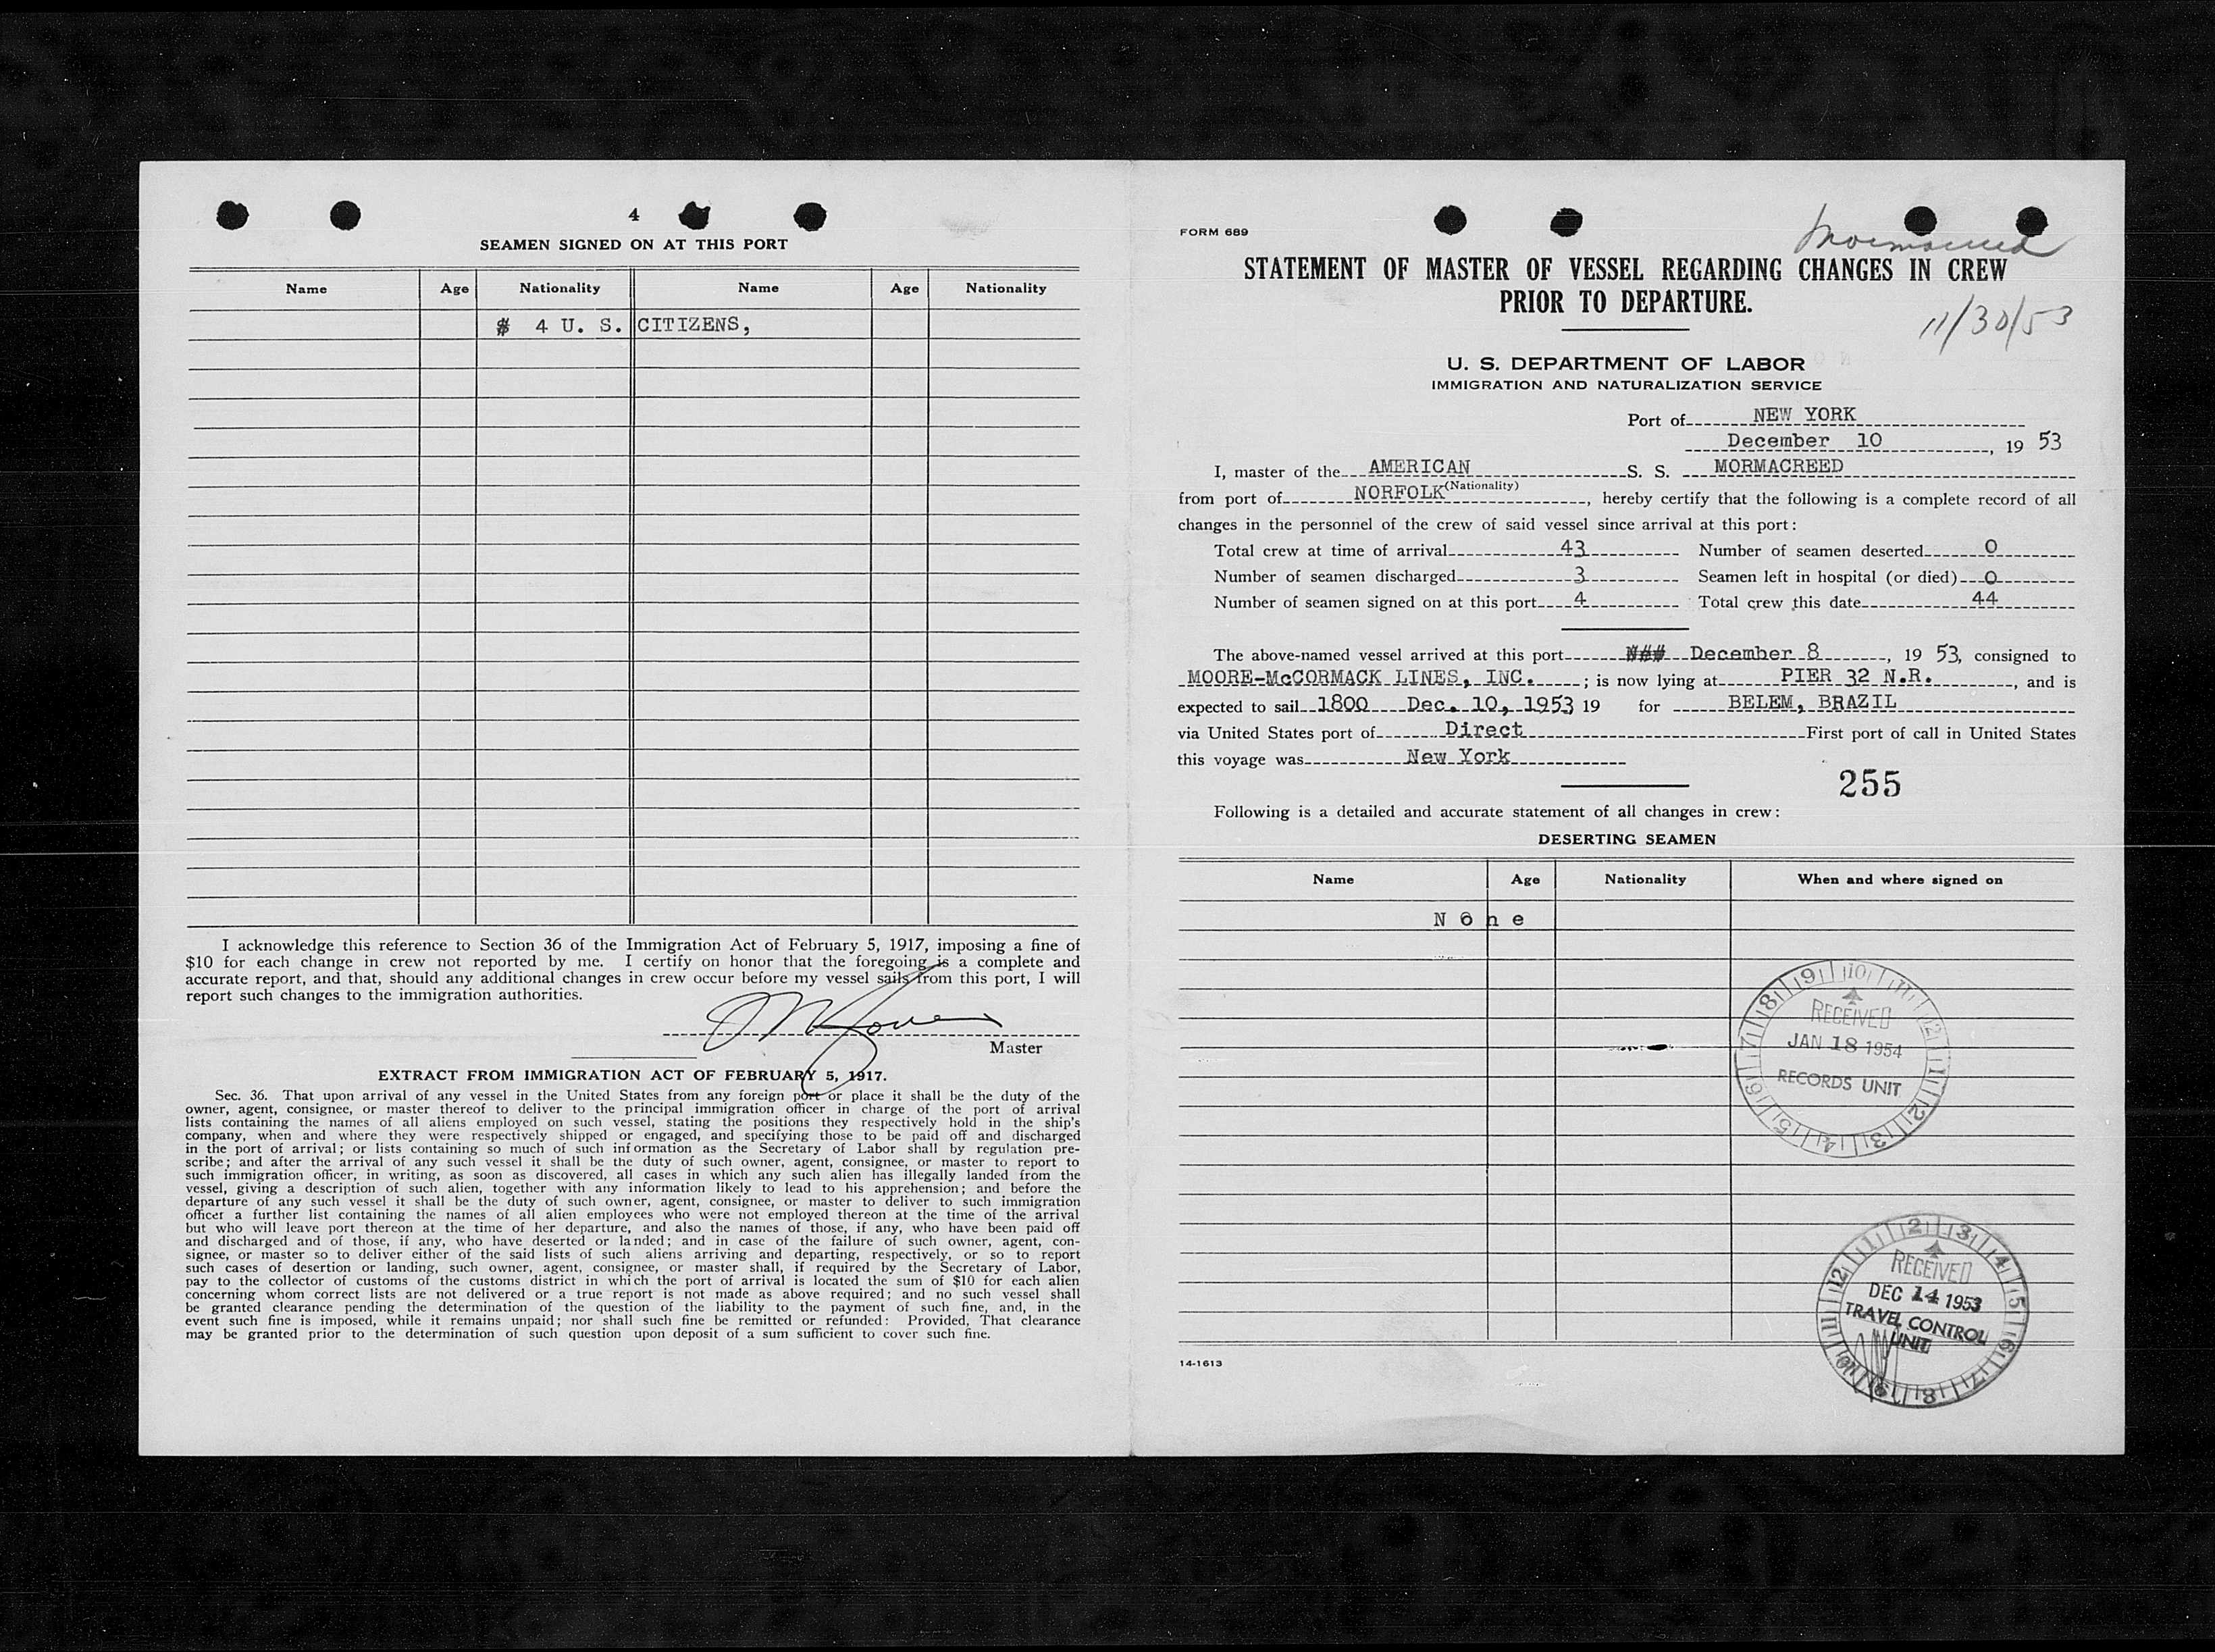 4
SEAMEN SIGNED ON AT THIS PORT
Name Age Nationality Name Age Nationality
4 U. S. CITIZENS,
I acknowledge this reference to Section 36 of the Immigration Act of February 5, 1917, imposing a fine of
$10 for each change in crew not reported by me. I certify on honor that the foregoing is a complete and
accurate report, and that, should any additional changes in crew occur before my vessel sails from this port, I will
report such changes to the immigration authorities.
Master
EXTRACT FROM IMMIGRATION ACT OF FEBRUARY 5, 1917.
Sec. 36. That upon arrival of any vessel in the United States from any foreign port or place it shall be the duty of the
owner, agent, consignee, or master thereof to deliver to the principal immigration officer in charge of the port of arrival
lists containing the names of all aliens employed on such vessel, stating the positions they respectively hold in the ship's
company, when and where they were respectively shipped or engaged, and specifying those to be paid off and discharged
in the port of arrival; or lists containing so much of such information as the Secretary of Labor shall by regulation pre-
scribe; and after the arrival of any such vessel it shall be the duty of such owner, agent, consignee, or master to report to
such immigration officer, in writing, as soon as discovered, all cases in which any such alien has illegally landed from the
vessel, giving a description of such alien, together with any information likely to lead to his apprehension; and before the
departure of any such vessel it shall be the duty of such owner, agent, consignee, or master to deliver to such immigration
officer a further list containing the names of all alien employees who were not employed thereon at the time of the arrival
but who will leave port thereon at the time of her departure, and also the names of those, if any, who have been paid off
and discharged and of those, if any, who have deserted or landed; and in case of the failure of such owner, agent, con-
signee, or master so to deliver either of the said lists of such aliens arriving and departing, respectively, or so to report
such cases of desertion or landing, such owner, agent, consignee, or master shall, if required by the Secretary of Labor,
pay to the collector of customs of the customs district in which the port of arrival is located the sum of $10 for each alien
concerning whom correct lists are not delivered or a true report is not made as above required; and no such vessel shall
be granted clearance pending the determination of the question of the liability to the payment of such fine, and, in the
event such fine is imposed, while it remains unpaid; nor shall such fine be remitted or refunded: Provided, That clearance
may be granted prior to the determination of such question upon deposit of a sum sufficient to cover such fine.
FORM 689
STATEMENT OF MASTER OF VESSEL REGARDING CHANGES IN CREW
PRIOR TO DEPARTURE.
11/30/53
U. S. DEPARTMENT OF LABOR
IMMIGRATION AND NATURALIZATION SERVICE
Port of NEW YORK
December 10, 19 53
I, master of the AMERICAN S. S. MORMACREED
(Nationality)
from port of NORFOLK, hereby certify that the following is a complete record of all
changes in the personnel of the crew of said vessel since arrival at this port:
Total crew at time of arrival 43 Number of seamen deserted 0
Number of seamen discharged 3 Seamen left in hospital (or died) 0
Number of seamen signed on at this port 4 Total crew this date 44
The above-named vessel arrived at this port December 8, 19 53, consigned to
MOORE-McCORMACK LINES, INC.; is now lying at PIER 32 N.R., and is
expected to sail 1800 Dec. 10, 1953 19 for BELEM, BRAZIL
via United States port of Direct First port of call in United States
this voyage was New York
255
Following is a detailed and accurate statement of all changes in crew:
DESERTING SEAMEN
Name Age Nationality When and where signed on
None
RECEIVED
JAN 18 1954
RECORDS UNIT
RECEIVED
DEC 14 1953
TRAVEL CONTROL
UNIT
14-1613